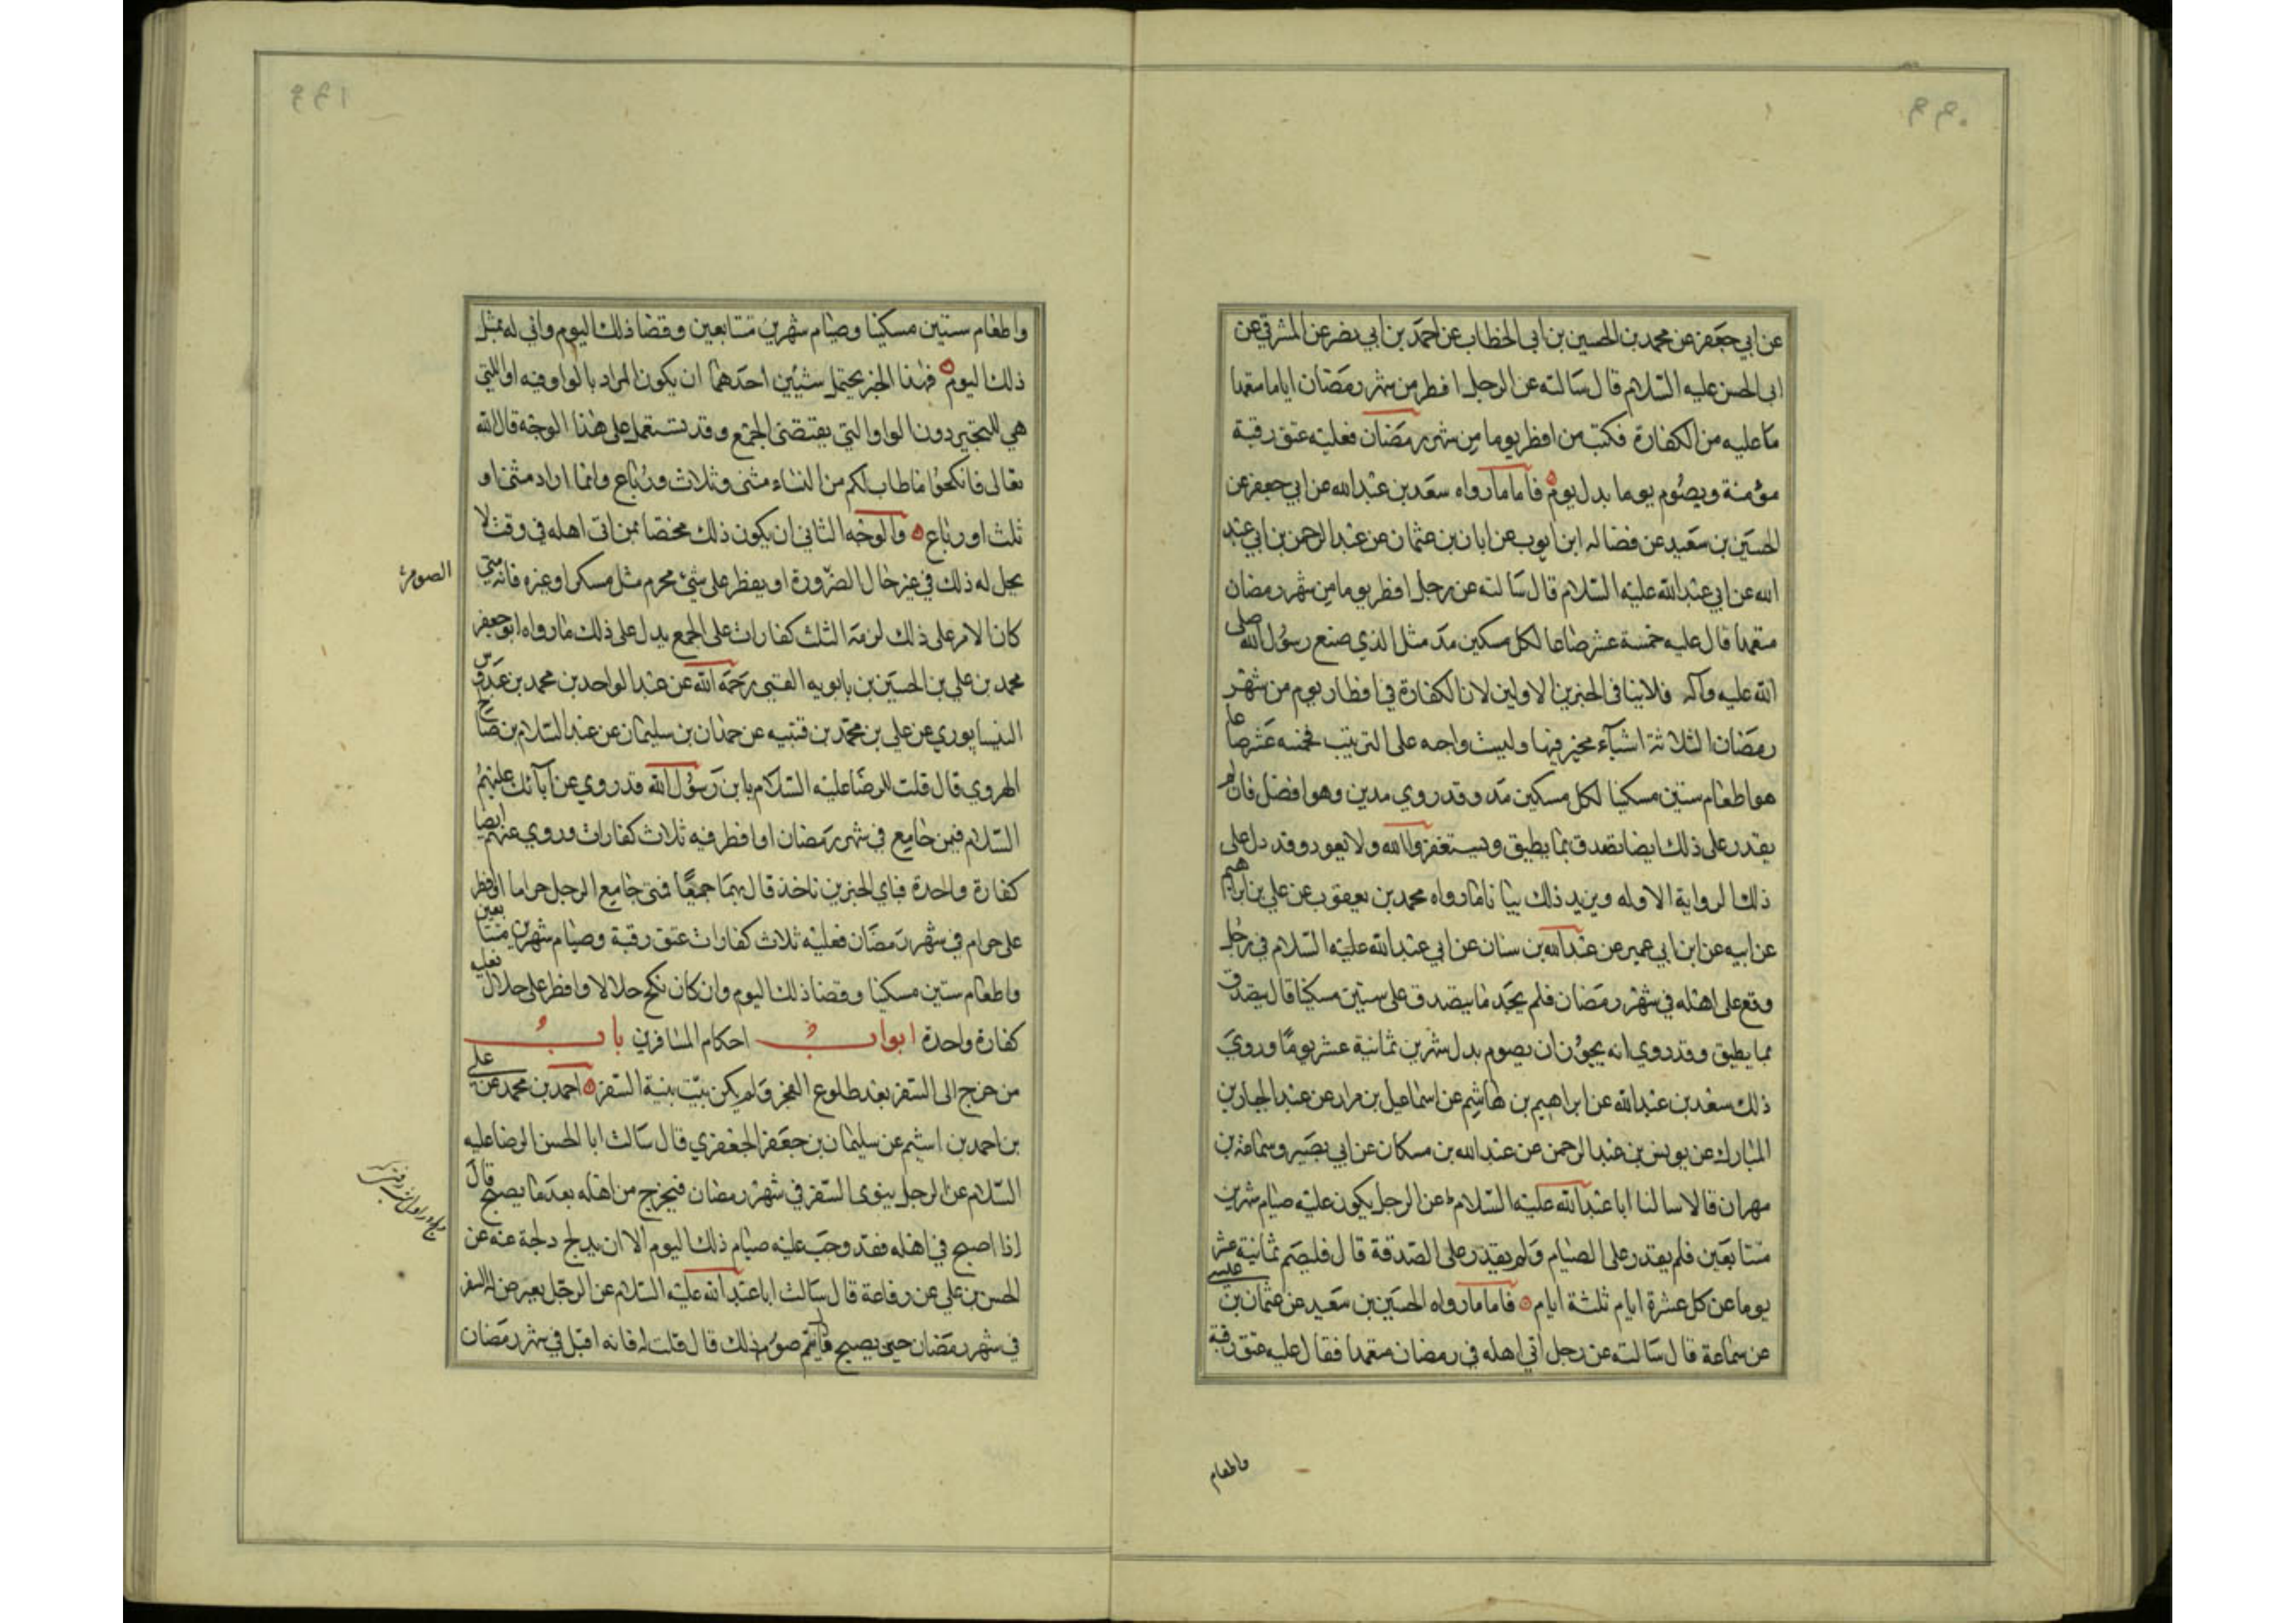 ٩٩٠
عن ابي جعفر عن محمد بن الحسين بن ابى الخطاب عن احمد بن ابي نصر عن المشرقي عن
ابى الحسن عليه السلام قال سالته عن الرجل افطر من شهر رمضان اياما متعمدا
ما عليه من الكفارة فكتب من افطر يوما من شهر رمضان فعليه عتق رقبة
مؤمنة ويصوم يوما بدل يوم فاما ما رواه سعد بن عبد الله عن ابي جعفر عن
الحسين بن سعيد عن فضاله ابن ايوب عن ابان بن عثمان عن عبد الرحمن بن ابي عبد
الله عن ابي عبد الله عليه السلام قال سالته عن رجل افطر يوما من شهر رمضان
متعمدا قال عليه خمسة عشر صاعا لكل مسكين مد مثل الذي صنع رسول الله صلى
الله عليه وآله فلا ينافى الخبرين الاولين لان الكفارة في افطار يوم من شهر
رمضان الثلاثة اشياء مخير فيها وليست واجبه على الترتيب فخمسه عشر صاعا
هو اطعام ستين مسكينا لكل مسكين مد وقد روي مدين وهو افضل فان لم
يقدر على ذلك ايضا تصدق بما يطيق ويستغفر الله ولا يعود وقد دل على
ذلك الرواية الاوله ويزيد ذلك بيانا ما رواه محمد بن يعقوب عن علي بن ابراهيم
عن ابيه عن ابن ابي عمير عن عبد الله بن سنان عن ابي عبد الله عليه السلام في رجل
وقع على اهله في شهر رمضان فلم يجد ما يتصدق على ستين مسكينا قال يتصدق
بما يطيق وقد روي انه يجوز ان يصوم بدل شهرين ثمانية عشر يوما وروي
ذلك سعد بن عبد الله عن ابراهيم بن هاشم عن اسماعيل بن مرار عن عبد الجبار بن
المبارك عن يونس بن عبد الرحمن عن عبد الله بن مسكان عن ابي بصير وسماعة بن
مهران قالا سالنا ابا عبد الله عليه السلام عن الرجل يكون عليه صيام شهرين
متتابعين فلم يقدر على الصيام ولم يقدر على الصدقة قال فليصم ثمانية عشر
يوما عن كل عشرة ايام ثلثة ايام فاما ما رواه الحسين بن سعيد عن عثمان بن عيسى
عن سماعة قال سالته عن رجل اتي اهله في رمضان متعمدا فقال عليه عتق رقبة
واطعام
٩٩١
واطعام ستين مسكينا وصيام شهرين متتابعين وقضا ذلك اليوم واني له بمثل
ذلك اليوم فهذا الخبر يحتمل شيئين احدهما ان يكون المراد بالواو فيه او اللتي
هي للتخير دون الواو التي يقتضى الجمع وقد تستعمل على هذا الوجه قال الله
تعالى فانكحوا ما طاب لكم من النساء مثنى وثلاث ورباع وانما اراد مثنى او
ثلث او رباع والوجه الثاني ان يكون ذلك مخصا بمن اتى اهله في وقت لا
يحل له ذلك في غير حال الضرورة او يفطر على شئ محرم مثل مسكر او غيره فانه متي
الصوم
كان الامر على ذلك لزمه الثلث كفارات على الجمع يدل على ذلك ما رواه ابو جعفر
محمد بن علي بن الحسين بن بابويه القمي رحمه الله عن عبد الواحد بن محمد بن عبدوس
النيسابوري عن علي بن محمد بن قتيبه عن حمدان بن سليمان عن عبد السلام بن صالح
الهروي قال قلت للرضا عليه السلام يا بن رسول الله قد روي عن آبائك عليهم
السلام فيمن جامع في شهر رمضان او افطر فيه ثلاث كفارات وروي عنهم ايضا
كفارة واحدة فباي الخبرين ناخذ قال بهما جميعا فمتى جامع الرجل حراما او افطر
على حرام في شهر رمضان فعليه ثلاث كفارات عتق رقبة وصيام شهرين متتابعين
واطعام ستين مسكينا وقضا ذلك اليوم وان كان نكح حلالا او افطر على حلال فعليه
كفارة واحدة ابواب احكام المسافرين باب
من خرج الى السفر بعد طلوع الفجر ولم يكن بيت بنية السفر احمد بن محمد عن علي
بن احمد بن اشيم عن سليمان بن جعفر الجعفري قال سالت ابا الحسن الرضا عليه
السلام عن الرجل ينوى السفر في شهر رمضان فيخرج من اهله بعد ما يصبح قال
اذا اصبح في اهله فقد وجب عليه صيام ذلك اليوم الا ان يدلج دلجة عنه عن
الحسن بن علي عن رفاعة قال سالت ابا عبد الله عليه السلام عن الرجل يعرض له السفر
في شهر رمضان حين يصبح قال يتم صوم ذلك قال قلت له فانه اقبل في شهر رمضان